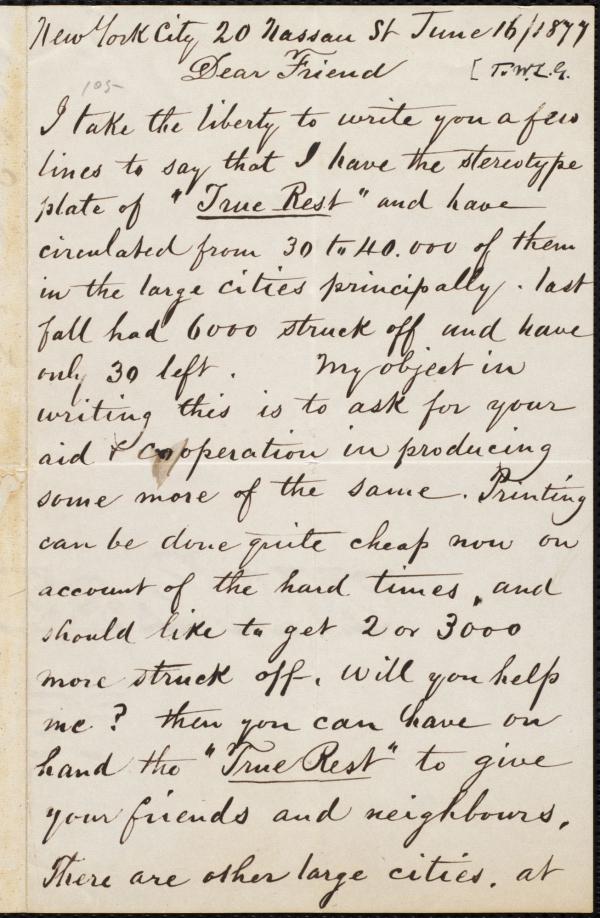 New York City 20 Nassau St June 16/1877
Dear Friend [T.W.L.G.
105
I take the liberty to write you a few
lines to say that I have the stereotype
plate of "True Rest" and have
circulated from 30 to 40.000 of them
in the large cities principally. last
fall had 6000 struck off and have
only 30 left. My object in
writing this is to ask for your
aid & cooperation in producing
some more of the same. Printing
can be done quite cheap now on
account of the hard times, and
should like to get 2 or 3000
more struck off. Will you help
me? then you can have on
hand the "True Rest" to give
your friends and neighbours.
There are other large cities. at